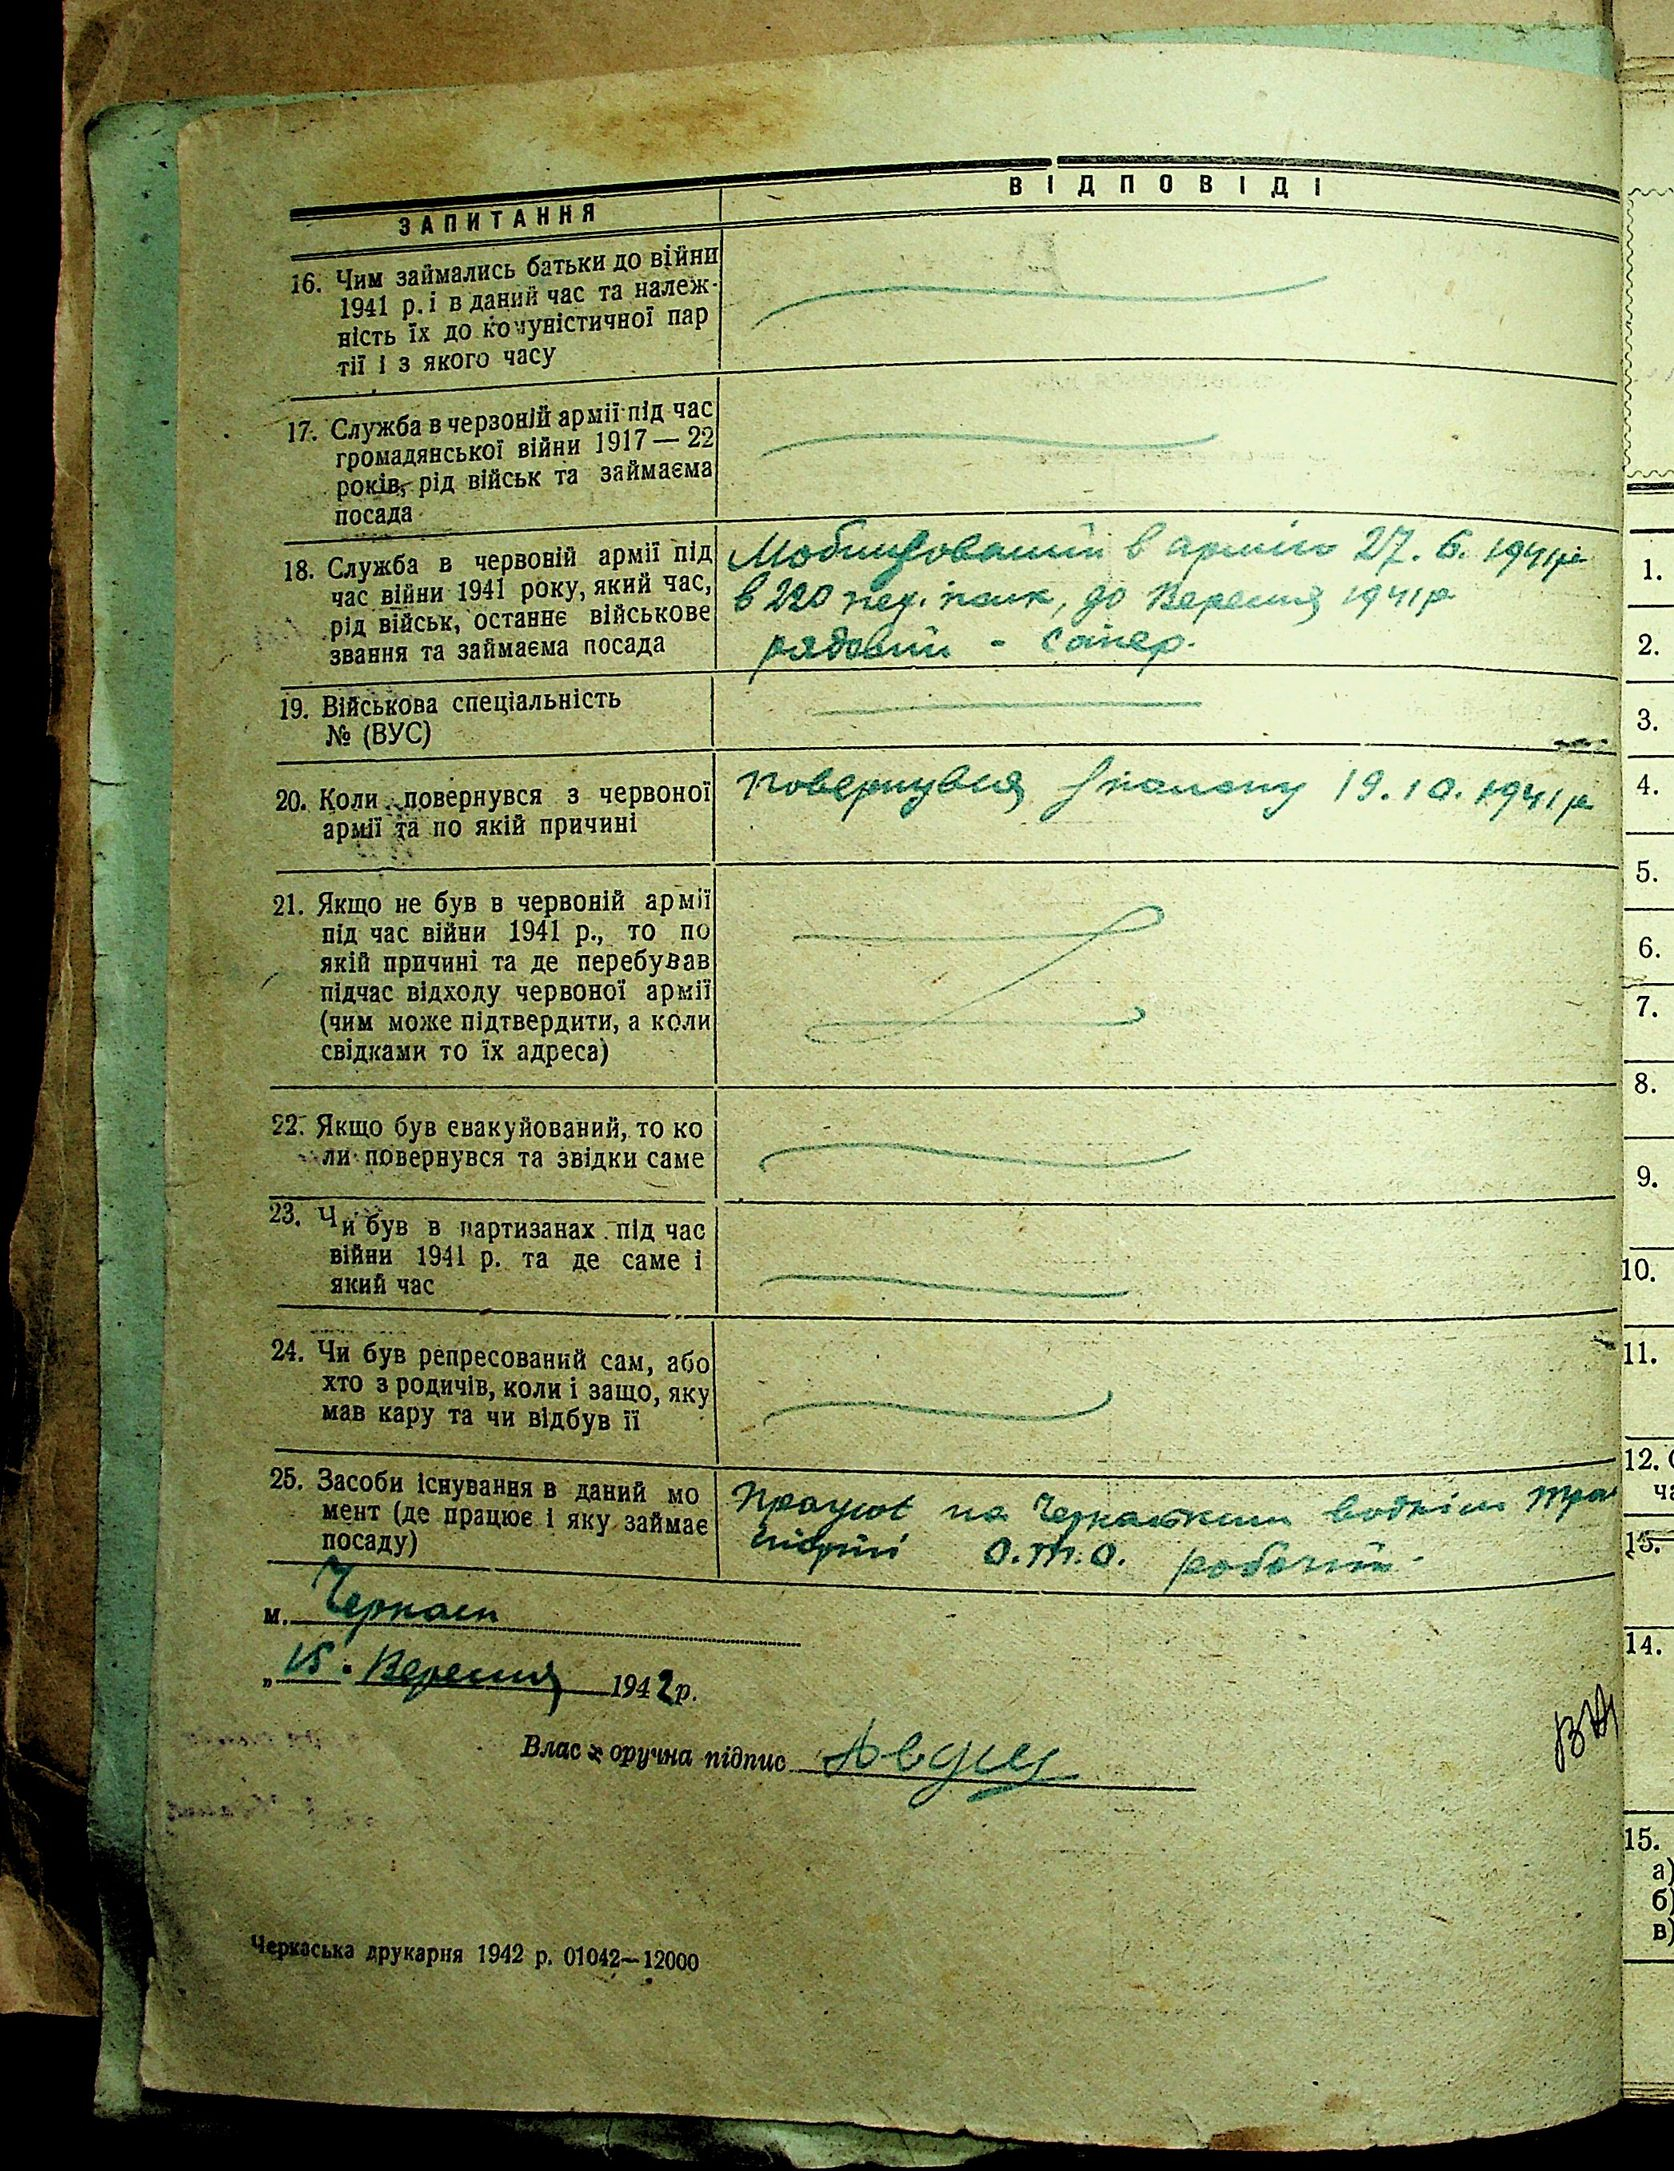 ЗАПИТАННЯ
ВІДПОВІДІ
16. Чим займались батьки до війни
1941 р. і в даний час та належ-
ність їх до комуністичної пар
тії і з якого часу
17. Служба в червоній армії під час
громадянської війни 1917 — 22
років, рід військ та займаєма
посада
18. Служба в червоній армії під
час війни 1941 року, який час,
рід військ, останнє військове
звання та займаєма посада
Мобилізований в армію 27. 6. 1941р
в 220 пех. полк, до Вересня 1941р
рядовий - сапер.
19. Військова спеціальність
№ (ВУС)
20. Коли повернувся з червоної
армії та по якій причині
Повернувся з полону 19.10.1941р
21. Якщо не був в червоній армії
під час війни 1941 р., то по
якій причині та де перебував
підчас відходу червоної армії
(чим може підтвердити, а коли
свідками то їх адреса)
22. Якщо був евакуйований, то ко
ли повернувся та звідки саме
23. Чи був в партизанах під час
війни 1941 р. та де саме і
який час
24. Чи був репресований сам, або
хто з родичів, коли і защо, яку
мав кару та чи відбув її
25. Засоби існування в даний мо
мент (де працює і яку займає
посаду)
Працює на Черкаським водкім тран
спорті О.Т.О. робочий.
м. Черкаси
„15. Вересня 1942 р.
Власноручна підпис
Черкаська друкарня 1942 р. 01042—12000
1.
2.
3.
4.
5.
6.
7.
8.
9.
10.
11.
12.
ча
13.
14.
15.
а)
б)
в)